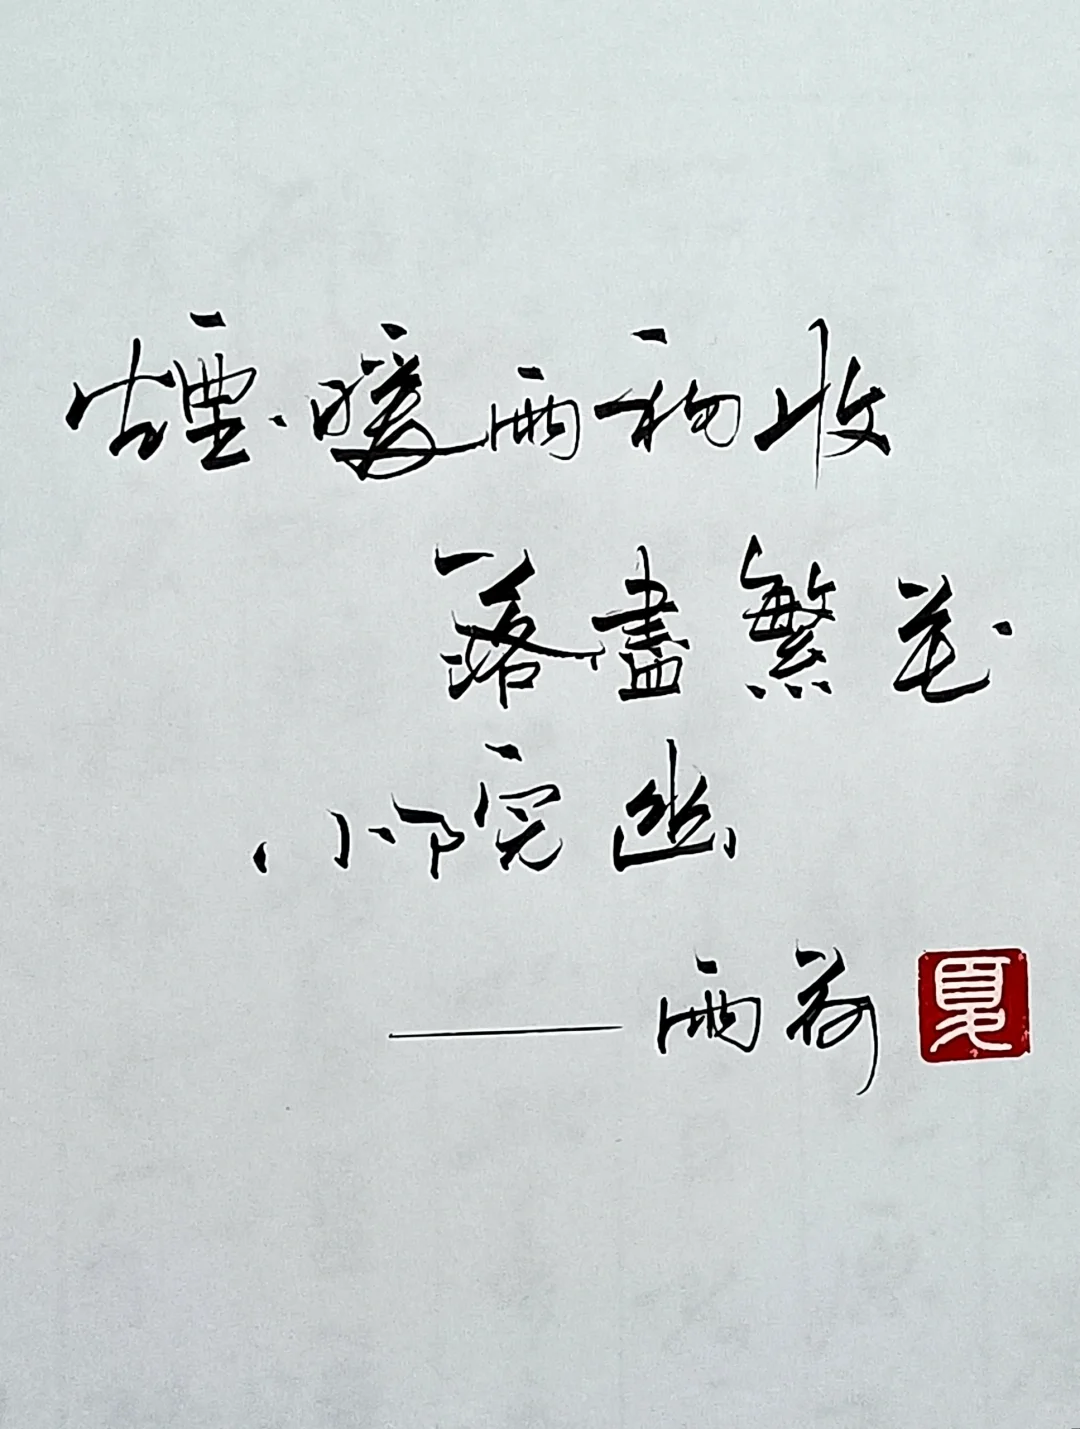 煙暖雨初收
落盡繁花
小院幽
——雨荷
夏